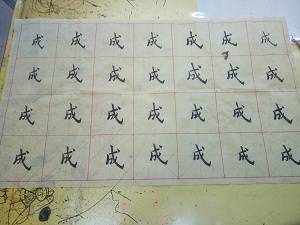 成成成成成成成
成成成成成成成
成成成成成成成
成成成成成成成